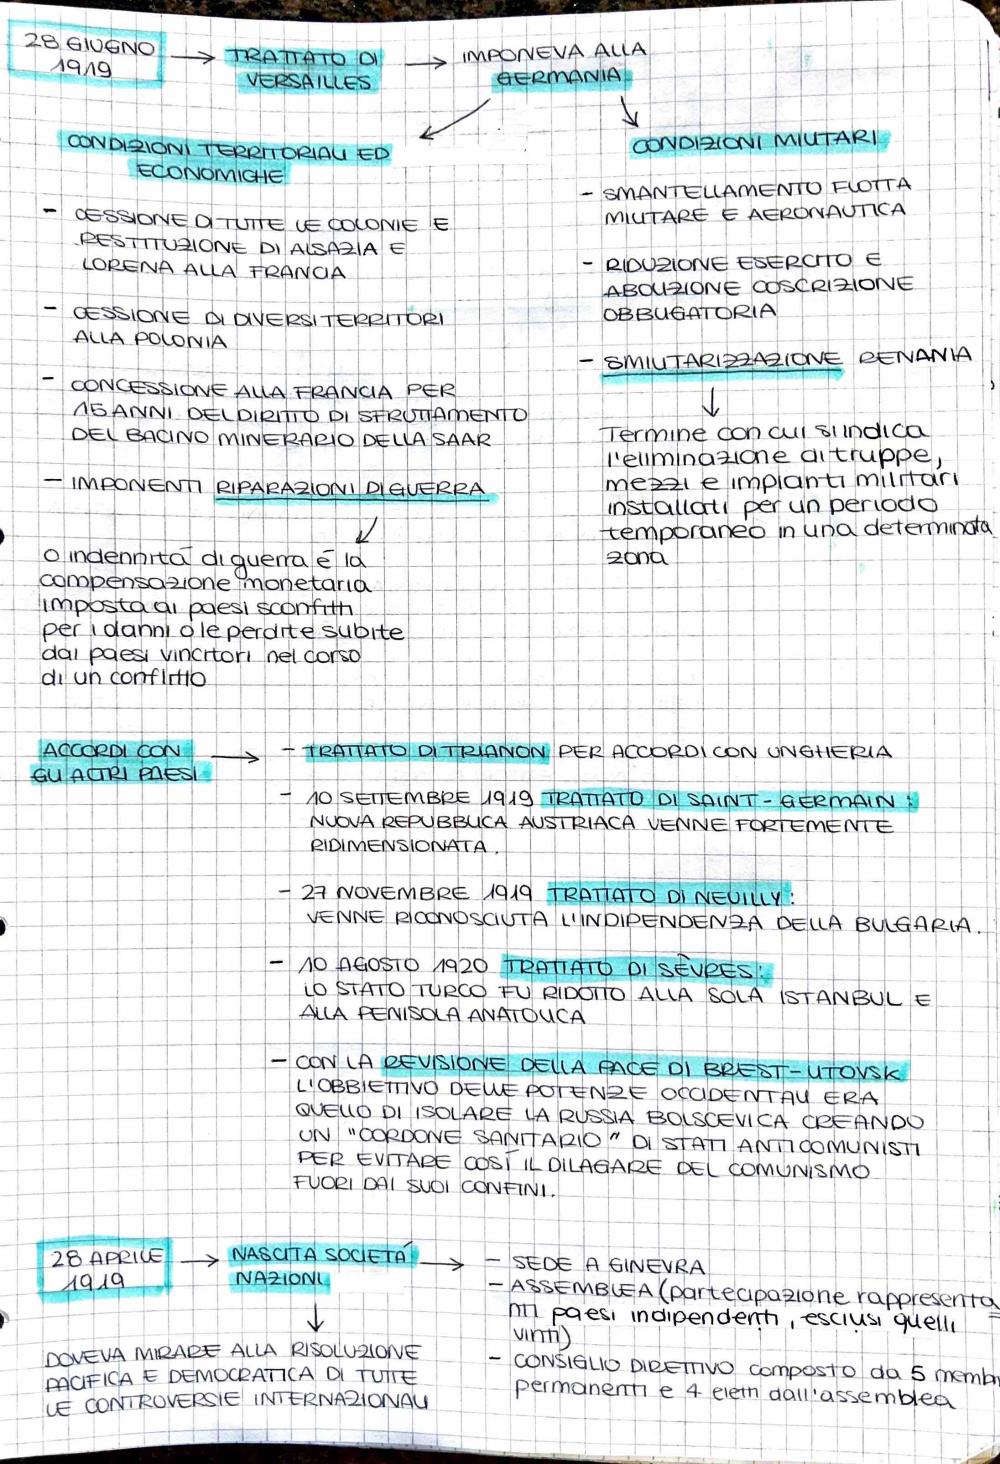 28 GIUGNO
1919
TRATTATO DI
VERSAILLES
IMPONEVA ALLA
GERMANIA
CONDIZIONI TERRITORIALI ED
ECONOMICHE
- CESSIONE DI TUTTE LE COLONIE E
RESTITUZIONE DI ALSAZIA E
LORENA ALLA FRANCIA
- CESSIONE DI DIVERSI TERRITORI
ALLA POLONIA
- CONCESSIONE ALLA FRANCIA PER
15 ANNI DEL DIRITTO DI SFRUTTAMENTO
DEL BACINO MINERARIO DELLA SAAR
- IMPONENTI RIPARAZIONI DI GUERRA
O indennità di guerra è la
compensazione monetaria
imposta ai paesi sconfitti
per i danni o le perdite subite
dai paesi vincitori nel corso
di un conflitto
CONDIZIONI MILITARI
- SMANTELLAMENTO FLOTTA
MILITARE E AERONAUTICA
- RIDUZIONE ESERCITO E
ABOLIZIONE COSCRIZIONE
OBBLIGATORIA
- SMILITARIZZAZIONE RENANIA
Termine con cui si indica
l'eliminazione di truppe,
mezzi e impianti militari
installati per un periodo
temporaneo in una determinata
zona
ACCORDI CON
GLI ALTRI PAESI
- TRATTATO DI TRIANON PER ACCORDI CON UNGHERIA
- 10 SETTEMBRE 1919 TRATTATO DI SAINT-GERMAIN:
NUOVA REPUBBLICA AUSTRIACA VENNE FORTEMENTE
RIDIMENSIONATA.
- 27 NOVEMBRE 1919 TRATTATO DI NEUILLY:
VENNE RICONOSCIUTA L'INDIPENDENZA DELLA BULGARIA.
- 10 AGOSTO 1920 TRATTATO DI SÈVRES:
LO STATO TURCO FU RIDOTTO ALLA SOLA ISTANBUL E
ALLA PENISOLA ANATOLICA
- CON LA REVISIONE DELLA PACE DI BREST-LITOVSK
L'OBBIETTIVO DELLE POTENZE OCCIDENTALI ERA
QUELLO DI ISOLARE LA RUSSIA BOLSCEVICA CREANDO
UN "CORDONE SANITARIO" DI STATI ANTICOMUNISTI
PER EVITARE COSÌ IL DILAGARE DEL COMUNISMO
FUORI DAI SUOI CONFINI.
28 APRILE
1919
NASCITA SOCIETÀ
NAZIONI
DOVEVA MIRARE ALLA RISOLUZIONE
PACIFICA E DEMOCRATICA DI TUTTE
LE CONTROVERSIE INTERNAZIONALI
- SEDE A GINEVRA
- ASSEMBLEA (partecipazione rappresenta=
nti paesi indipendenti, esclusi quelli
vinti)
- CONSIGLIO DIRETTIVO composto da 5 membri
permanenti e 4 eletti dall'assemblea